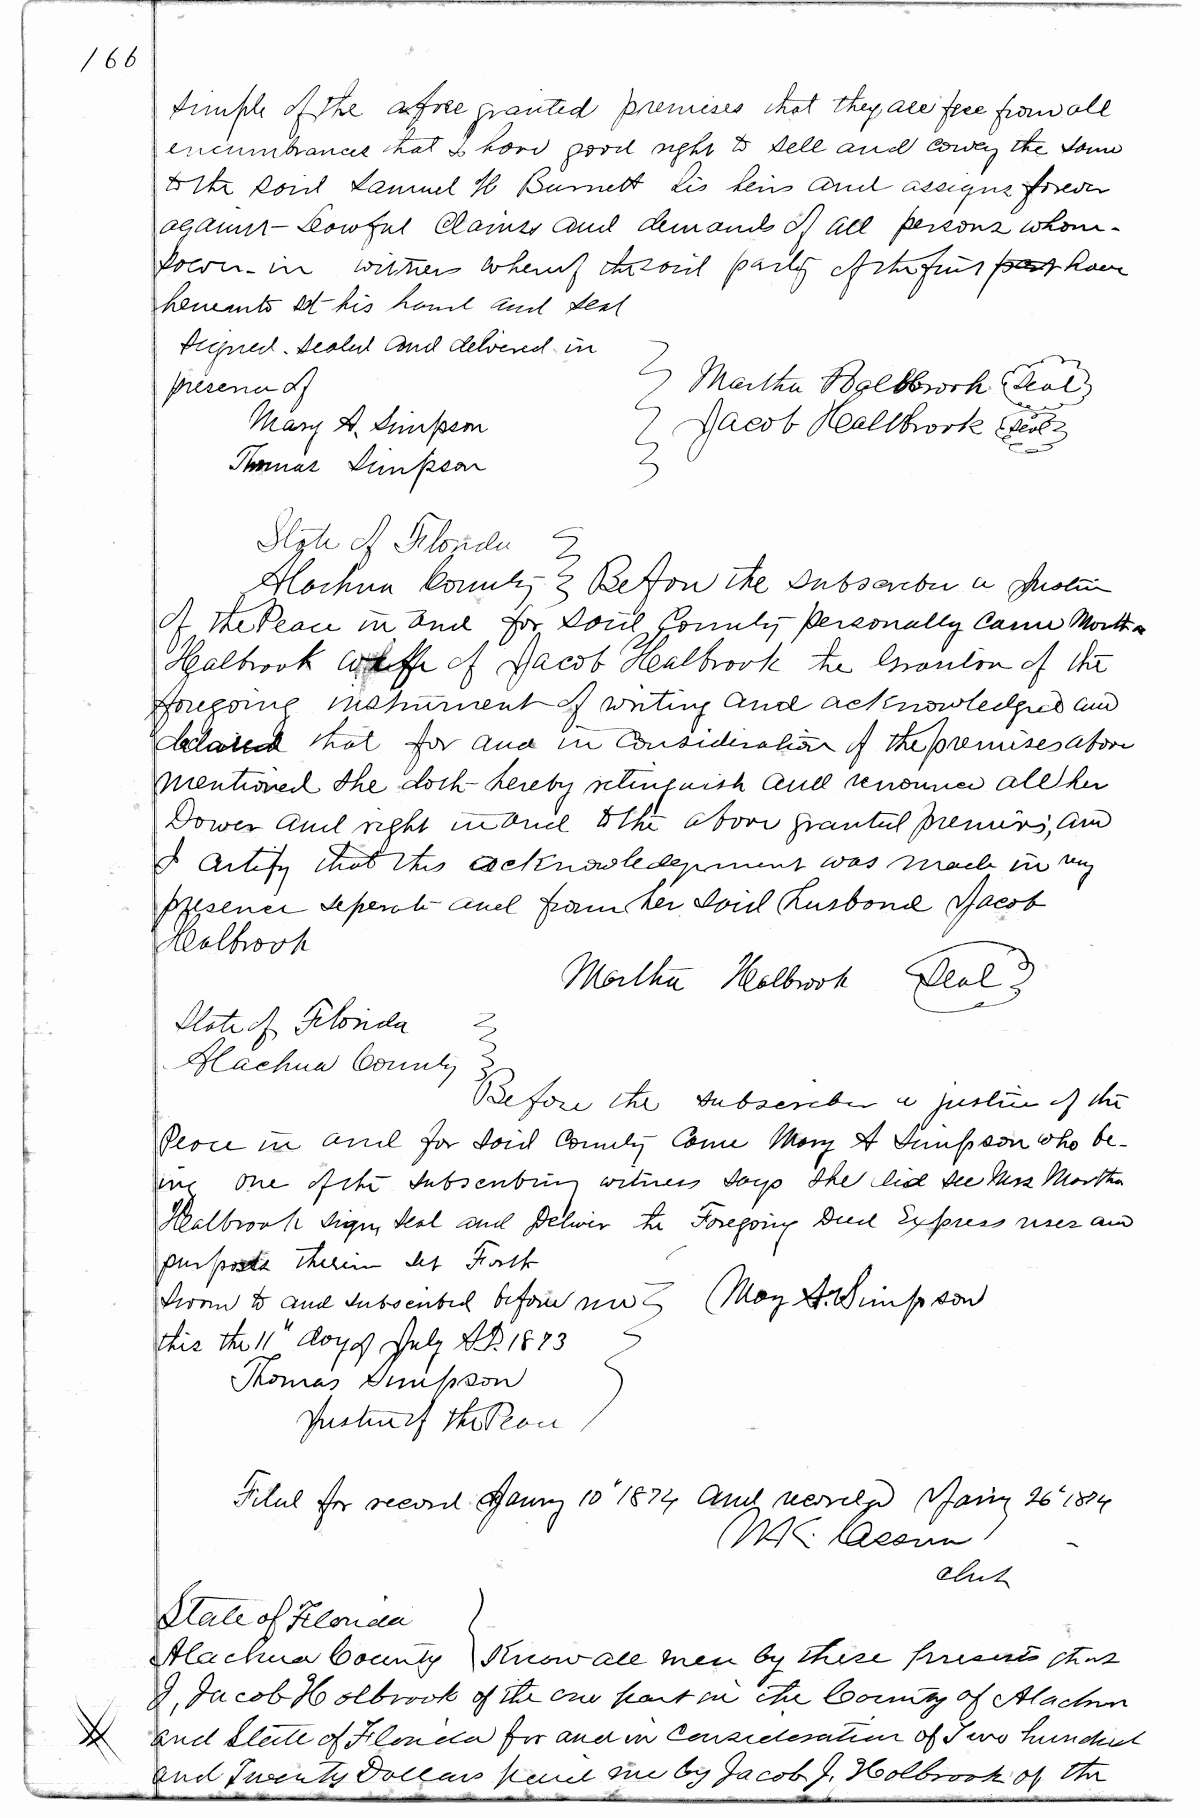 166
simple of the afore granted premises that they are free from all
encumbrances that I have good right to sell and convey the same
to the said Samuel H Burnett his heirs and assigns forever
against Lawful Claims and demands of all persons whom-
soever in witness whereof the said party of the first part have
hereunto set his hand and seal
signed. sealed and delivered in
presence of
Martha Holbrook (Seal)
Mary A. Simpson
Jacob Healbrook (Seal)
Thomas Simpson
State of Florida
Alachua County Before the subscriber a Justice
of the Peace in and for said County personally came Martha
Healbrook wife of Jacob Healbrook the Grantor of the
foregoing instrument of writing and acknowledged and
declared that for and in consideration of the premises above
mentioned she doth hereby relinquish and renounce all her
Dower and right in and to the above granted premises, and
I certify that this acknowledgement was made in my
presence seperate and from her said husband Jacob
Healbrook
Martha Healbrook (Seal)
State of Florida
Alachua County
Before the subscriber a justice of the
Peace in and for said County Came Mary A Simpson who be-
ing one of the subscribing witness says she did see Mrs Martha
Healbrook sign, seal and Deliver the Foregoing Deed Express uses and
purposes therein set Forth
Sworn to and subscribed before me
May A. Simpson
this the 11" day of July A.D. 1873
Thomas Simpson
Justice of the Peace
Filed for record Janury 10" 1874 and recorded Janry 26" 1874
Clerk
State of Florida
Alachua County Know all men by these presents that
I, Jacob Holbrook of the one part in the County of Alachua
and State of Florida for and in Consideration of Two hundred
and Twenty Dollars paid me by Jacob J. Holbrook of the